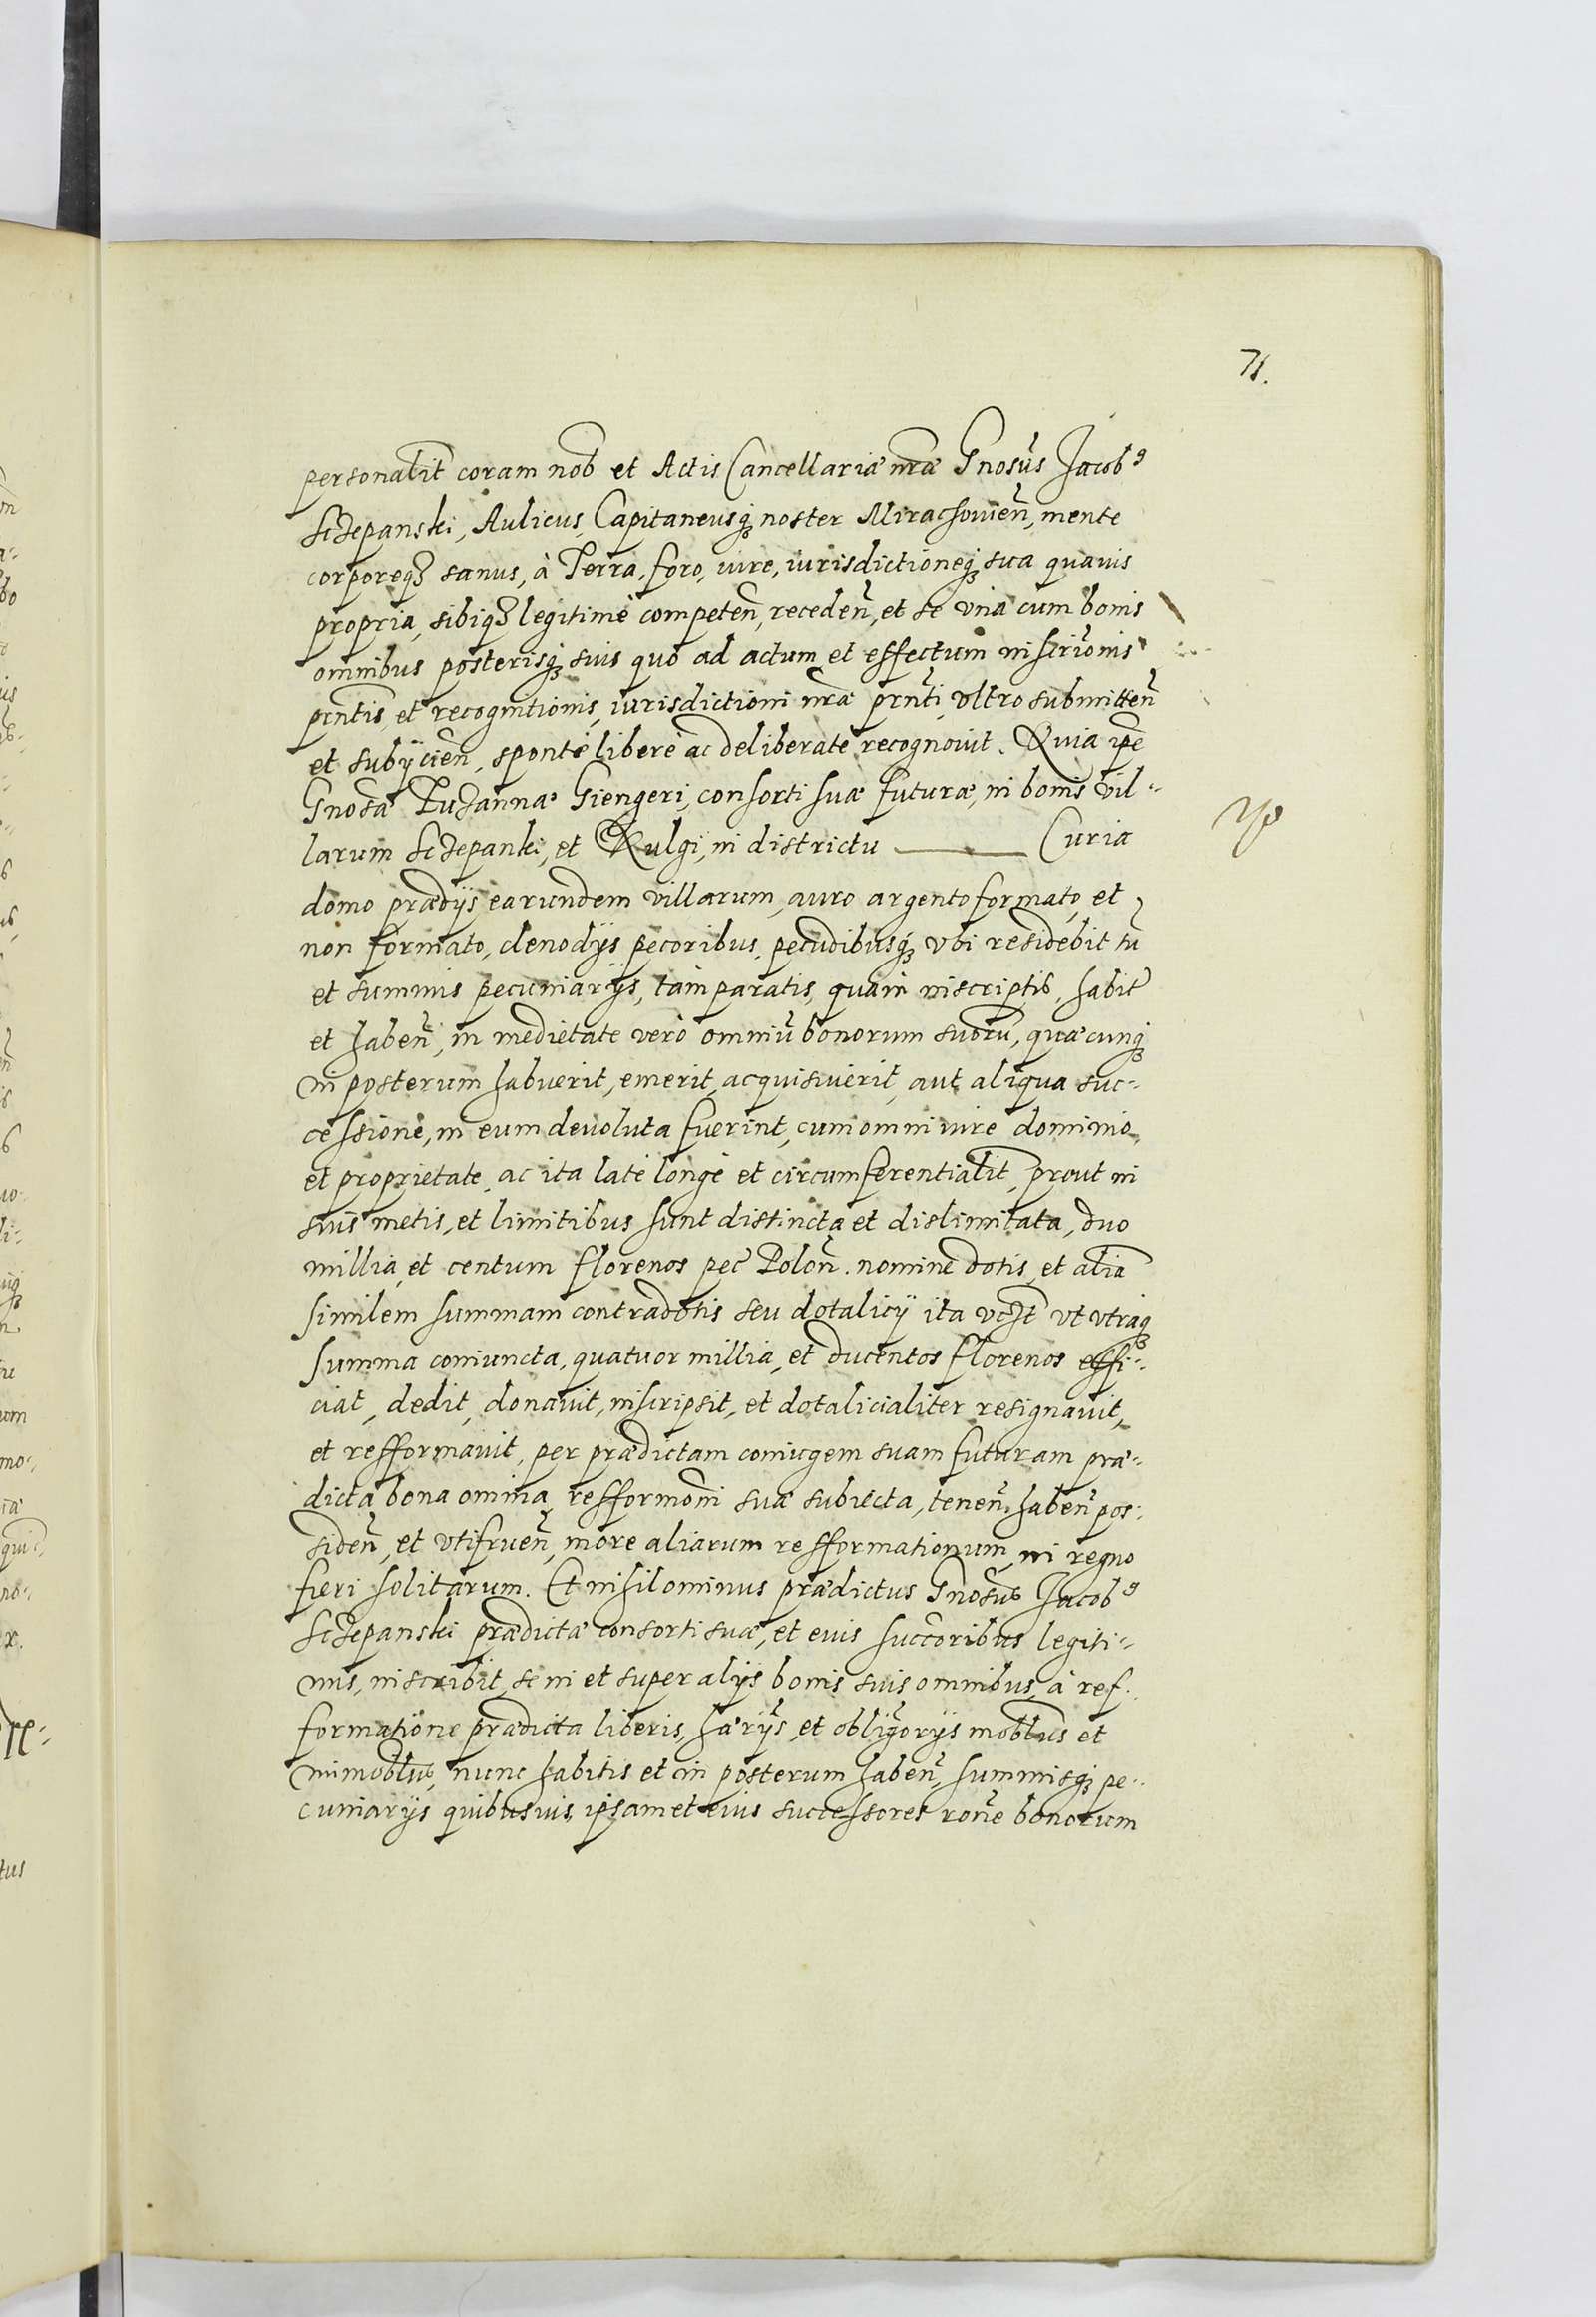 71.
personalit coram nob et Actis Cancellariæ nræ Gnosus Jacobꝰ
Sczepanski, Aulicus, Capitaneusq; noster Mirachovien, mente
corporeq; sanus, à Terra, foro, iure, iurisdictioneq; sua quavis
propria, sibiq; legitimè competen, receden, et se vna cum bonis
omnibus posterisq; suis quo ad actum et effectum inscrionis
prntis, et recognitionis, iurisdictioni nræ prnti, vltro submitten
et subÿcien, sponte liberè ac deliberatè recognovit. Quia ipe
Gnosæ Zuzannæ Giengeri, consorti suæ futuræ, in bonis vil-
larum Sczepanki, et Rulgi, in districtu ——— Curia
domo prædÿs earundem villarum, auro argento formato, et
non formato, clenodÿs pecoribus, pecudibusq; vbi residebit tu
et summis pecuniarÿs, tam paratis, quam inscriptis, habit
et haben, in medietate verò omniu bonorum suoru, quæcunq;
in posterum habuerit, emerit, acquisiverit, aut aliqua suc-
cessione, in eum devoluta fuerint, cum omni iure dominio,
et proprietate, ac ita latè longè et circumferentialit, prout in
suis metis, et limitibus sunt distincta et dislimitata, duo
millia, et centum florenos pec Polon. nomine dotis, et alia
similem summam contradotis seu dotalicÿ ita vt vtraq;
summa coniuncta, quatuor millia, et ducentos florenos effi-
ciat, dedit, donavit, inscripsit, et dotalicialiter resignavit,
et refformavit, per prædictam coniugem suam futuram præ-
dicta bona omnia, refformoni suæ subiecta, tenen, haben pos-
siden, et vtifruen, more aliarum refformationum, in regno
fieri solitarum. Et nihilominus prædictus Gnosus Jacobꝰ
Sczepanski prædictæ consorti suæ, et euis succoribus legiti-
mis, inscribit, se in et super alÿs bonis suis omnibus, à ref-
formatione prædicta liberis, hærÿs, et obligorÿs moblus et
immoblus, nunc habitis et in posterum haben, summisq; pe-
cuniarÿs quibusuis, ipsam et eius successores rone bonorum